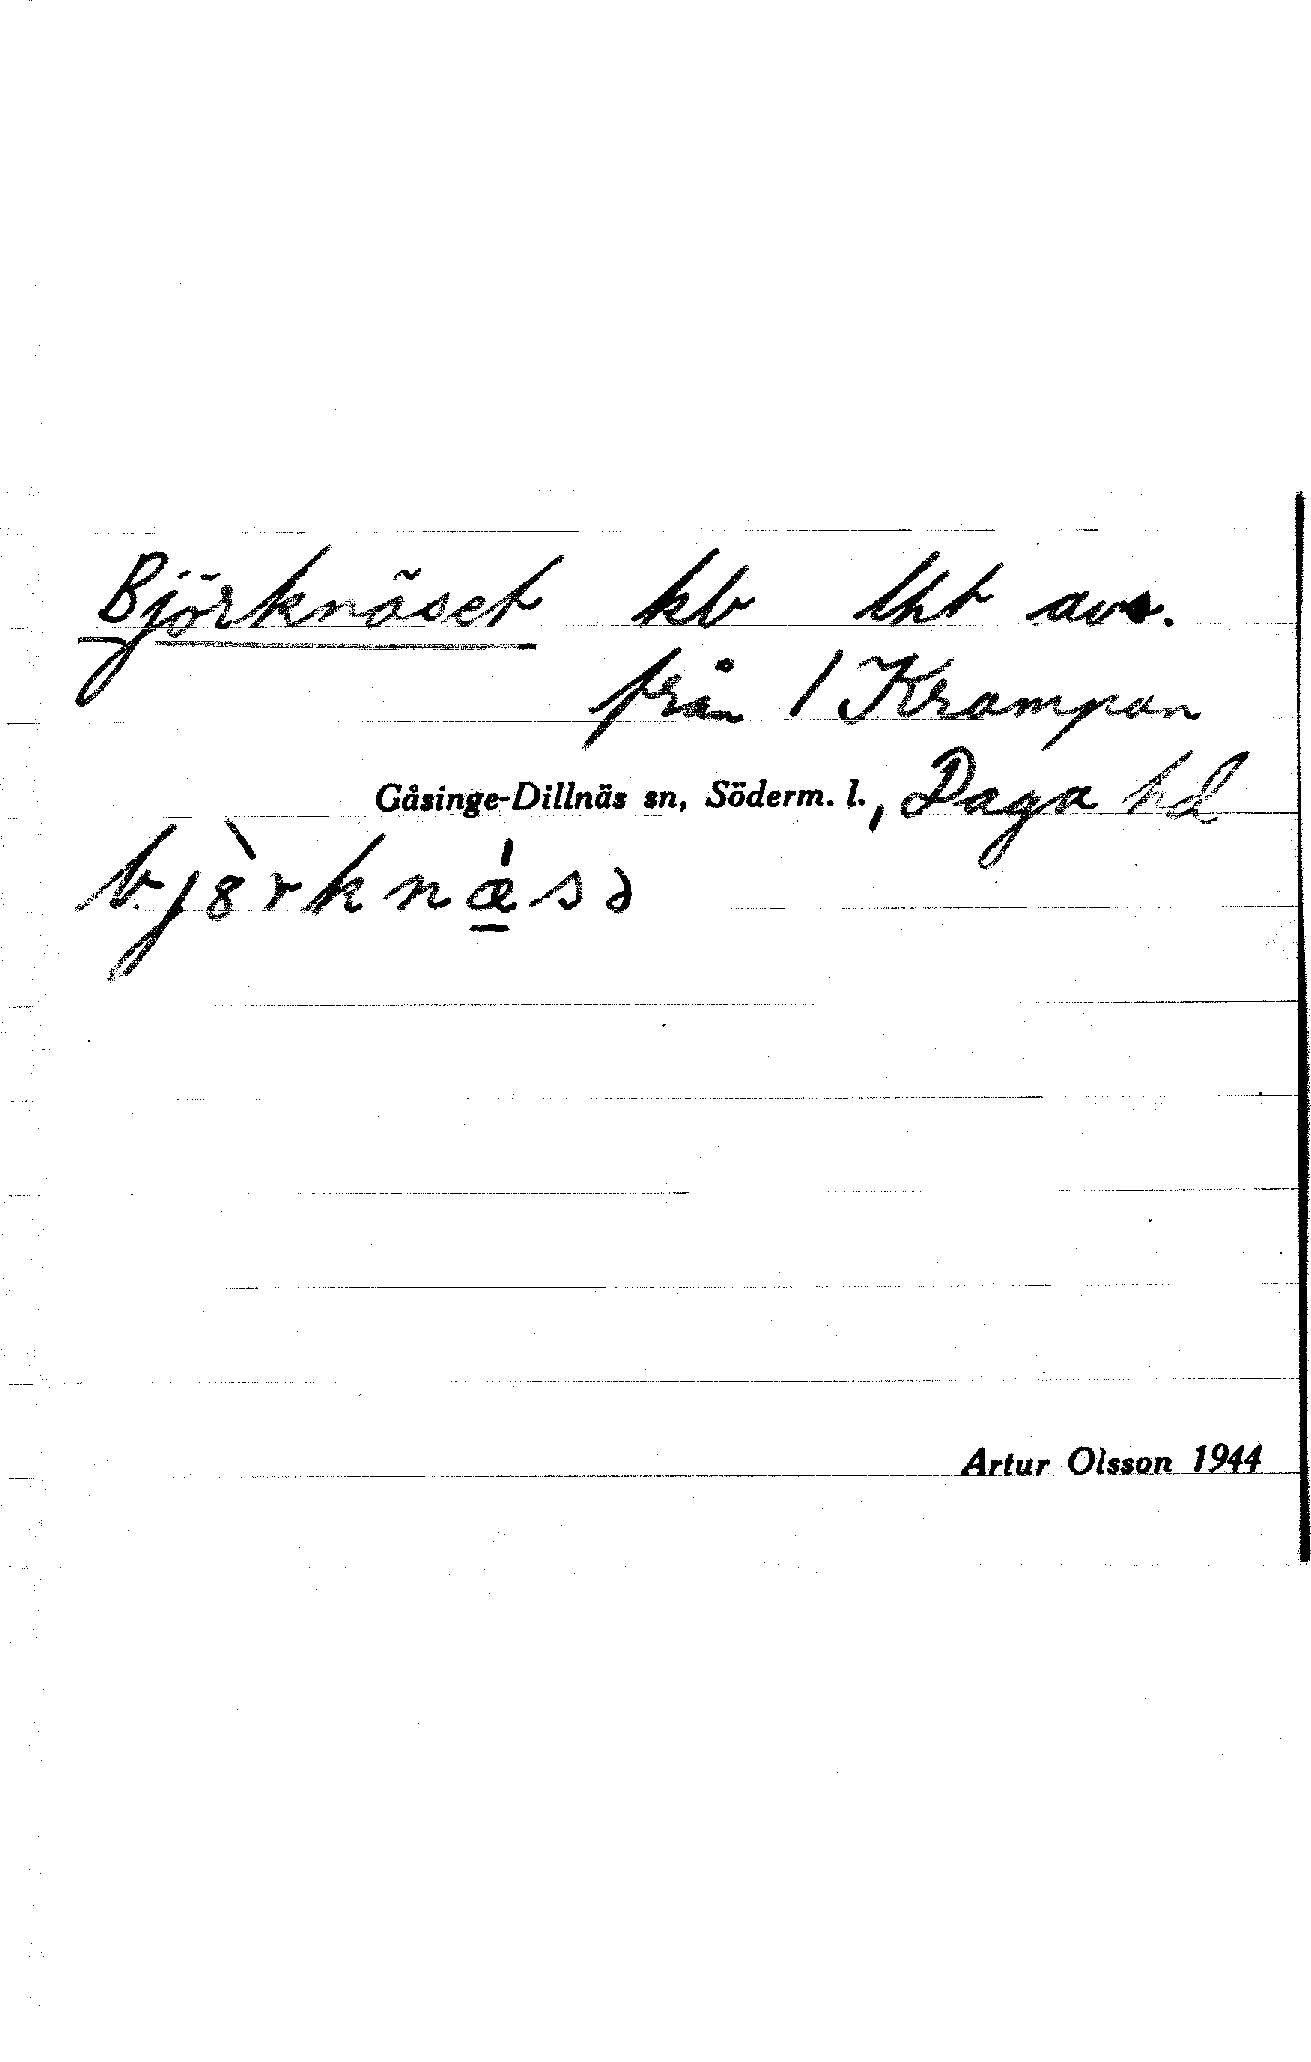 Björknäset kb lht avs.
från 1 Krampan
Gåsinge-Dillnäs sn, Söderm. l., Daga hd
bjö̀rknǽ̠sə
Artur Olsson 1944